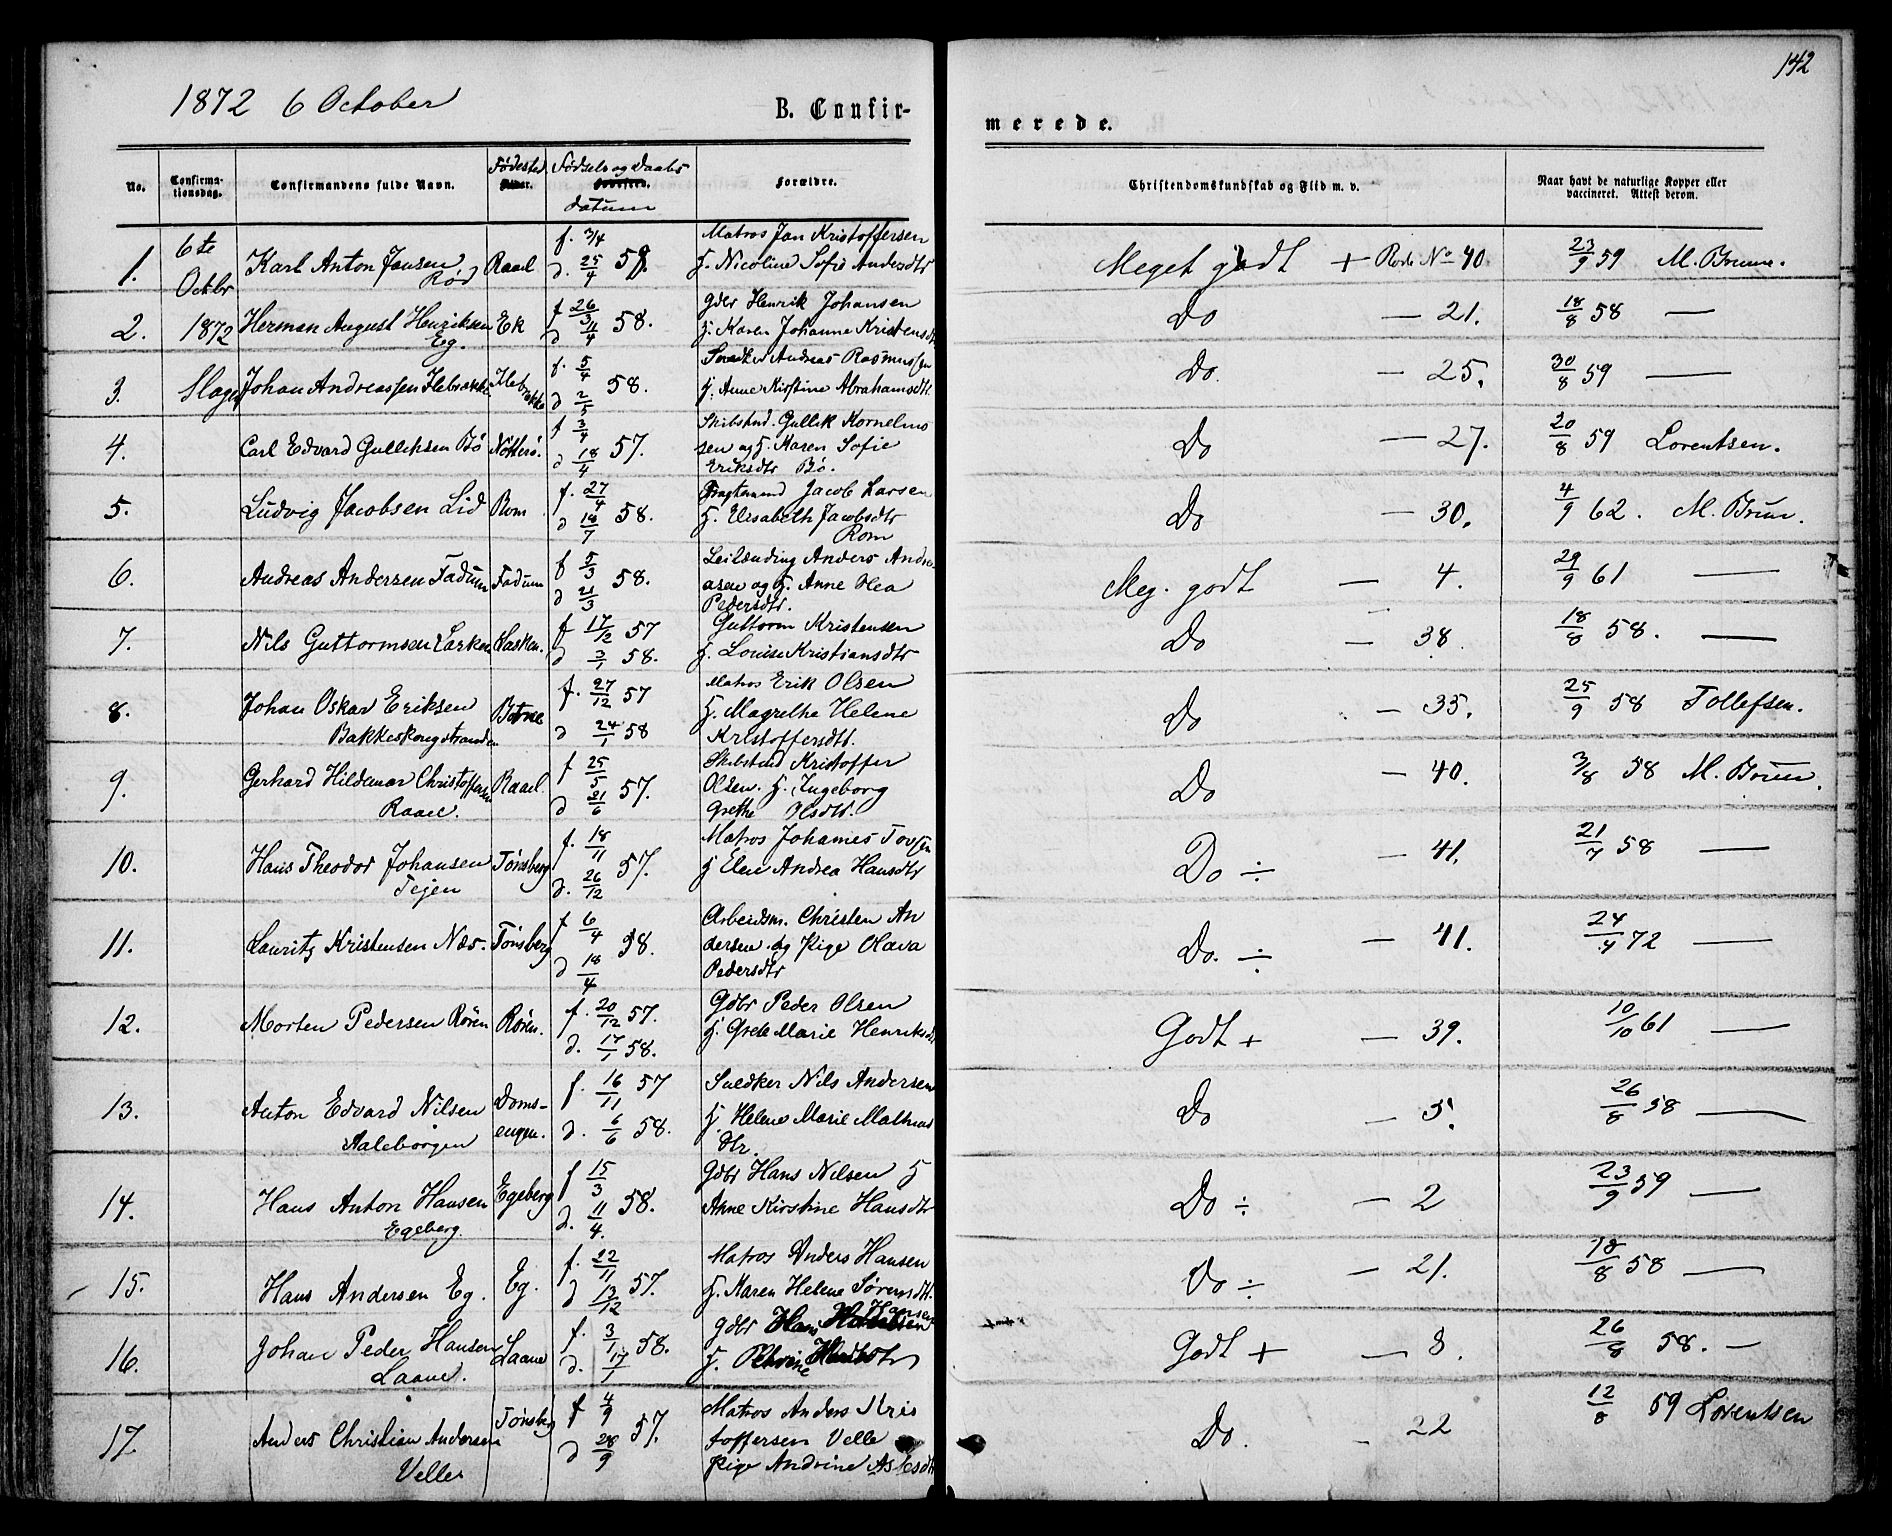 142
1872 6 October
B. Confir-
merede.
No.
Confirma-
tionsdag.
Confirmandens fulde Navn.
Fødested
Fødsels og Daabs
datum
Forældre.
Christendomskundskab og Flid m. v.
Naar havt de naturlige Kopper eller
vaccineret. Attest derom.
1. 6te Octbr Karl Anton Jansen Rød Raael f. 3/4 d. 25/4 58. Matros Jan Kristoffersen
H. Nicoline Sofie Andersdtr Meget godt + Rode No 40 23/9 59 M. Bruun.
2. 1872 Herman August Henriksen Eg. Ek f 26/3 d 11/4 58. Gdbr Henrik Johansen
H. Karen Johanne Kristensdtr Do — 21. 18/8 58 —
3. Slagen Johan Andreassen Ilebrække Ilebrække f. 5/4 d 2/5 58. Andreas Rasmussen
H. Anne Kirstine Abrahamsdtr. Do. — 25. 30/8 59 —
4. Carl Edvard Gulliksen Bø Nøtterø. f 3/4 d 18/4 57. Skibstmd. Gullik Kornelius
sen og H. Maren Sofie
Eriksdtr Bø. Do — 27. 20/8 59 Lorentsen.
5. Ludvig Jacobsen Lid Rom f. 27/4 d 18/7 58. Fragtemand Jacob Larsen
H. Elisabeth Jacobsdtr
Rom Do — 30. 4/9 62. M. Bruun.
6. Andreas Andersen Fadum Fadum f 5/3 d 21/3 58. Leilænding Anders Andre
asen og H. Anne Olea
Pedersdtr. Meg. godt — 4. 29/9 61 —
7. Nils Guttormsen Lasken Lasken. f 17/12 57 d 3/1 58. Guttorm Kristensen
H. Louise Kristiansdtr Do — 38. 18/8 58. —
8. Johan Oskar Eriksen
Bakkeskougstranden Botne f. 27/12 57 d 24/1 58 Matros Erik Olsen
H. Magrethe Helene
Kristoffersdtr. Do — 35. 25/9 58 Tollefsen.
9. Gerhard Hildemar Christoffersen
Raael. Raael. f 25/5 d 21/6 57. Skibstmd Kristoffer
Olsen. H. Ingeborg
Grethe Olsdtr. Do — 40. 3/8 58 M. Bruun.
10. Hans Theodor Johansen
Tejen Tønsberg f. 18/11 d. 26/12 57. Matros Johannes
H Elen Andrea Hansdtr Do ÷ — 41. 21/7 58 —
11. Lauritz Kristensen Næs. Tønsberg f 6/4 d 18/4 58. Arbeidsm. Christen An
dersen og Pige Olava
Pedersdtr Do. ÷ — 41. 24/4 72 —
12. Morten Pedersen Røren Røren. f. 20/12 57. d. 17/1 58. Gdbr Peder Olsen
H. Grete Marie Henriksdtr Godt + — 39. 10/10 61 —
13. Anton Edvard Nilsen
Aaleborgen Doms-
engen. f. 16/11 57 d. 6/6 58. Nils Andersen
H. Helene Marie Mathias
dtr. Do — 5. 26/8 58 —
14. Hans Anton Hansen
Egeberg. Egeberg f 15/3 d. 11/4. 58. Gdbr Hans Nilsen H
Anne Kirstine Hansdtr Do ÷ — 2 23/9 59 —
15. Hans Andersen Eg. Eg. f. 22/11 d 13/12 57. Matros Anders Hansen
H. Maren Helene Sørensdtr. Do ÷ — 21. 18/8 58 —
16. Johan Peder Hansen
Laane. Laane f. 3/1 d. 17/1 58. Gdbr Hans Hansen
H. Petrine Godt + — 8. 26/8 58. —
17. Anders Christian Andersen
Velle Tønsberg f 4/9 d 28/9 57. Matros Anders Kris
toffersen Velle
Pige Andrine Do. — 22 12/8 59 Lorentsen